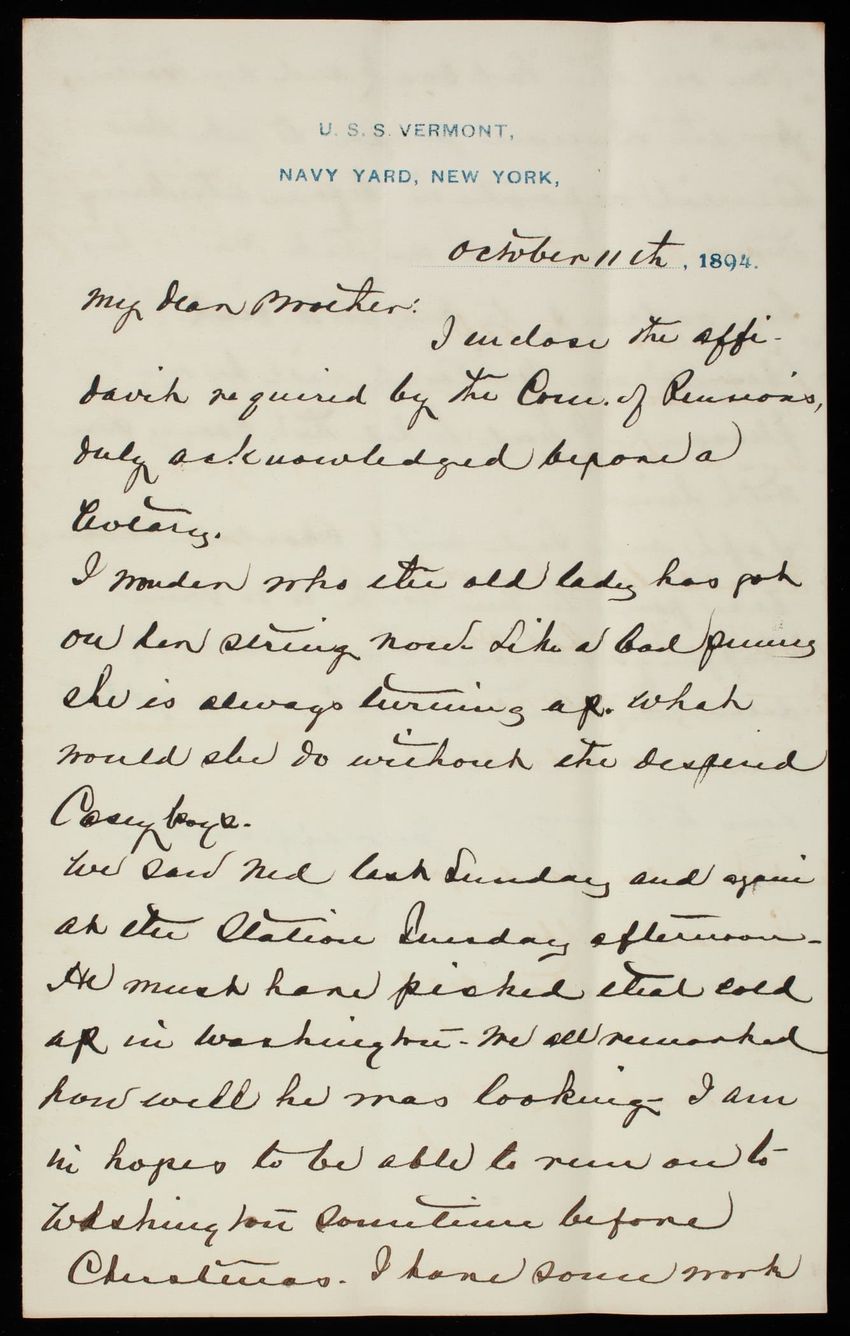 U. S. S. VERMONT,
NAVY YARD, NEW YORK,
October 11th, 1894.
My dear Brother:
I enclose the affi-
davit required by the Com. of Pensions,
duly acknowledged before a
Notary.
I wonder who the old lady has got
on her string now. Like a bad penny
she is always turning up. What
would she do without the despised
Casey boys.
We saw Ned last Sunday and again
at the Station Tuesday afternoon-
He must have picked that cold
up in Washington - We all remarked
how well he was looking - I am
in hopes to be able to run on to
Washington sometime before
Christmas. I have some work